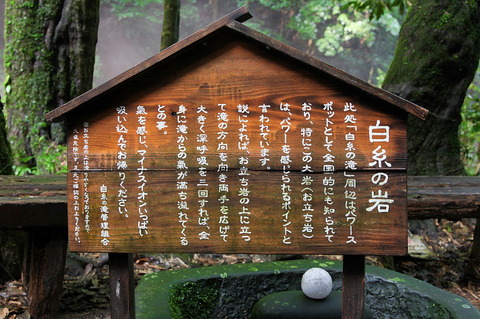 白糸の岩
此処「白糸の滝」周辺はパワース
ポットとして全国的にも知られて
おり、特にこの大岩(お立ち岩)
は、パワーを感じられるポイントと
言われています。
説によれば、お立ち岩の上に立っ
て滝の方向を向き両手を広げて
大きく深呼吸を三回すれば、全
身に滝からの気が満ち溢れてくる
との事。
氣を感じ、マイナスイオンいっぱい
吸い込んでお帰りください。
白糸の滝管理組合